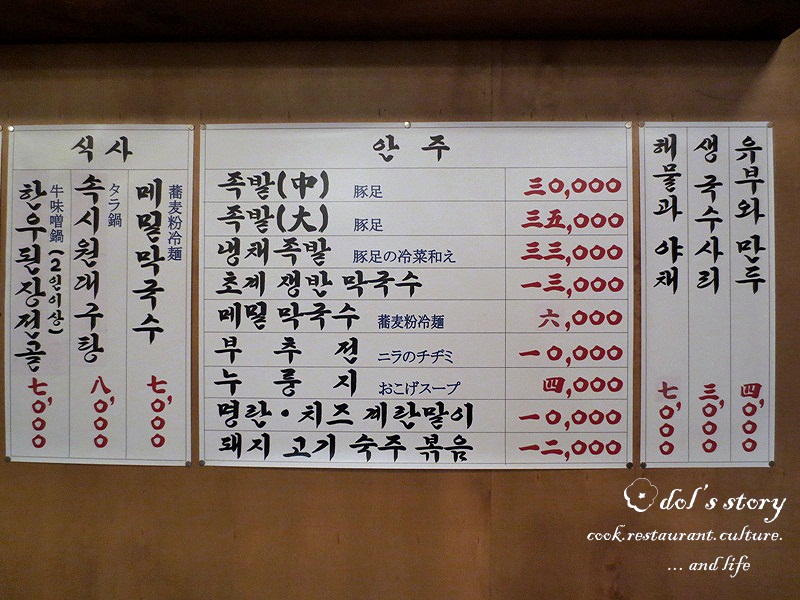 식사
메밀막국수 蕎麦粉冷麺 七,000
속시원대구탕 タラ鍋 八,000
한우된장전골 (2인이상) 牛味噌鍋 七,000
안 주
족발(中) 豚足 三0,000
족발(大) 豚足 三五,000
냉채족발 豚足の冷菜和え 三三,000
초계 쟁반 막국수 一三,000
메밀 막국수 蕎麦粉冷麺 六,000
부 추 전 ニラのチヂミ 一0,000
누 룽 지 おこげスープ 四,000
명란·치즈 계란말이 一0,000
돼지 고기 숙주 볶음 一二,000
유부와 만두 四,000
생 국수사리 三,000
해물과 야채 七,000
dol's story
cook.restaurant.culture.
... and life